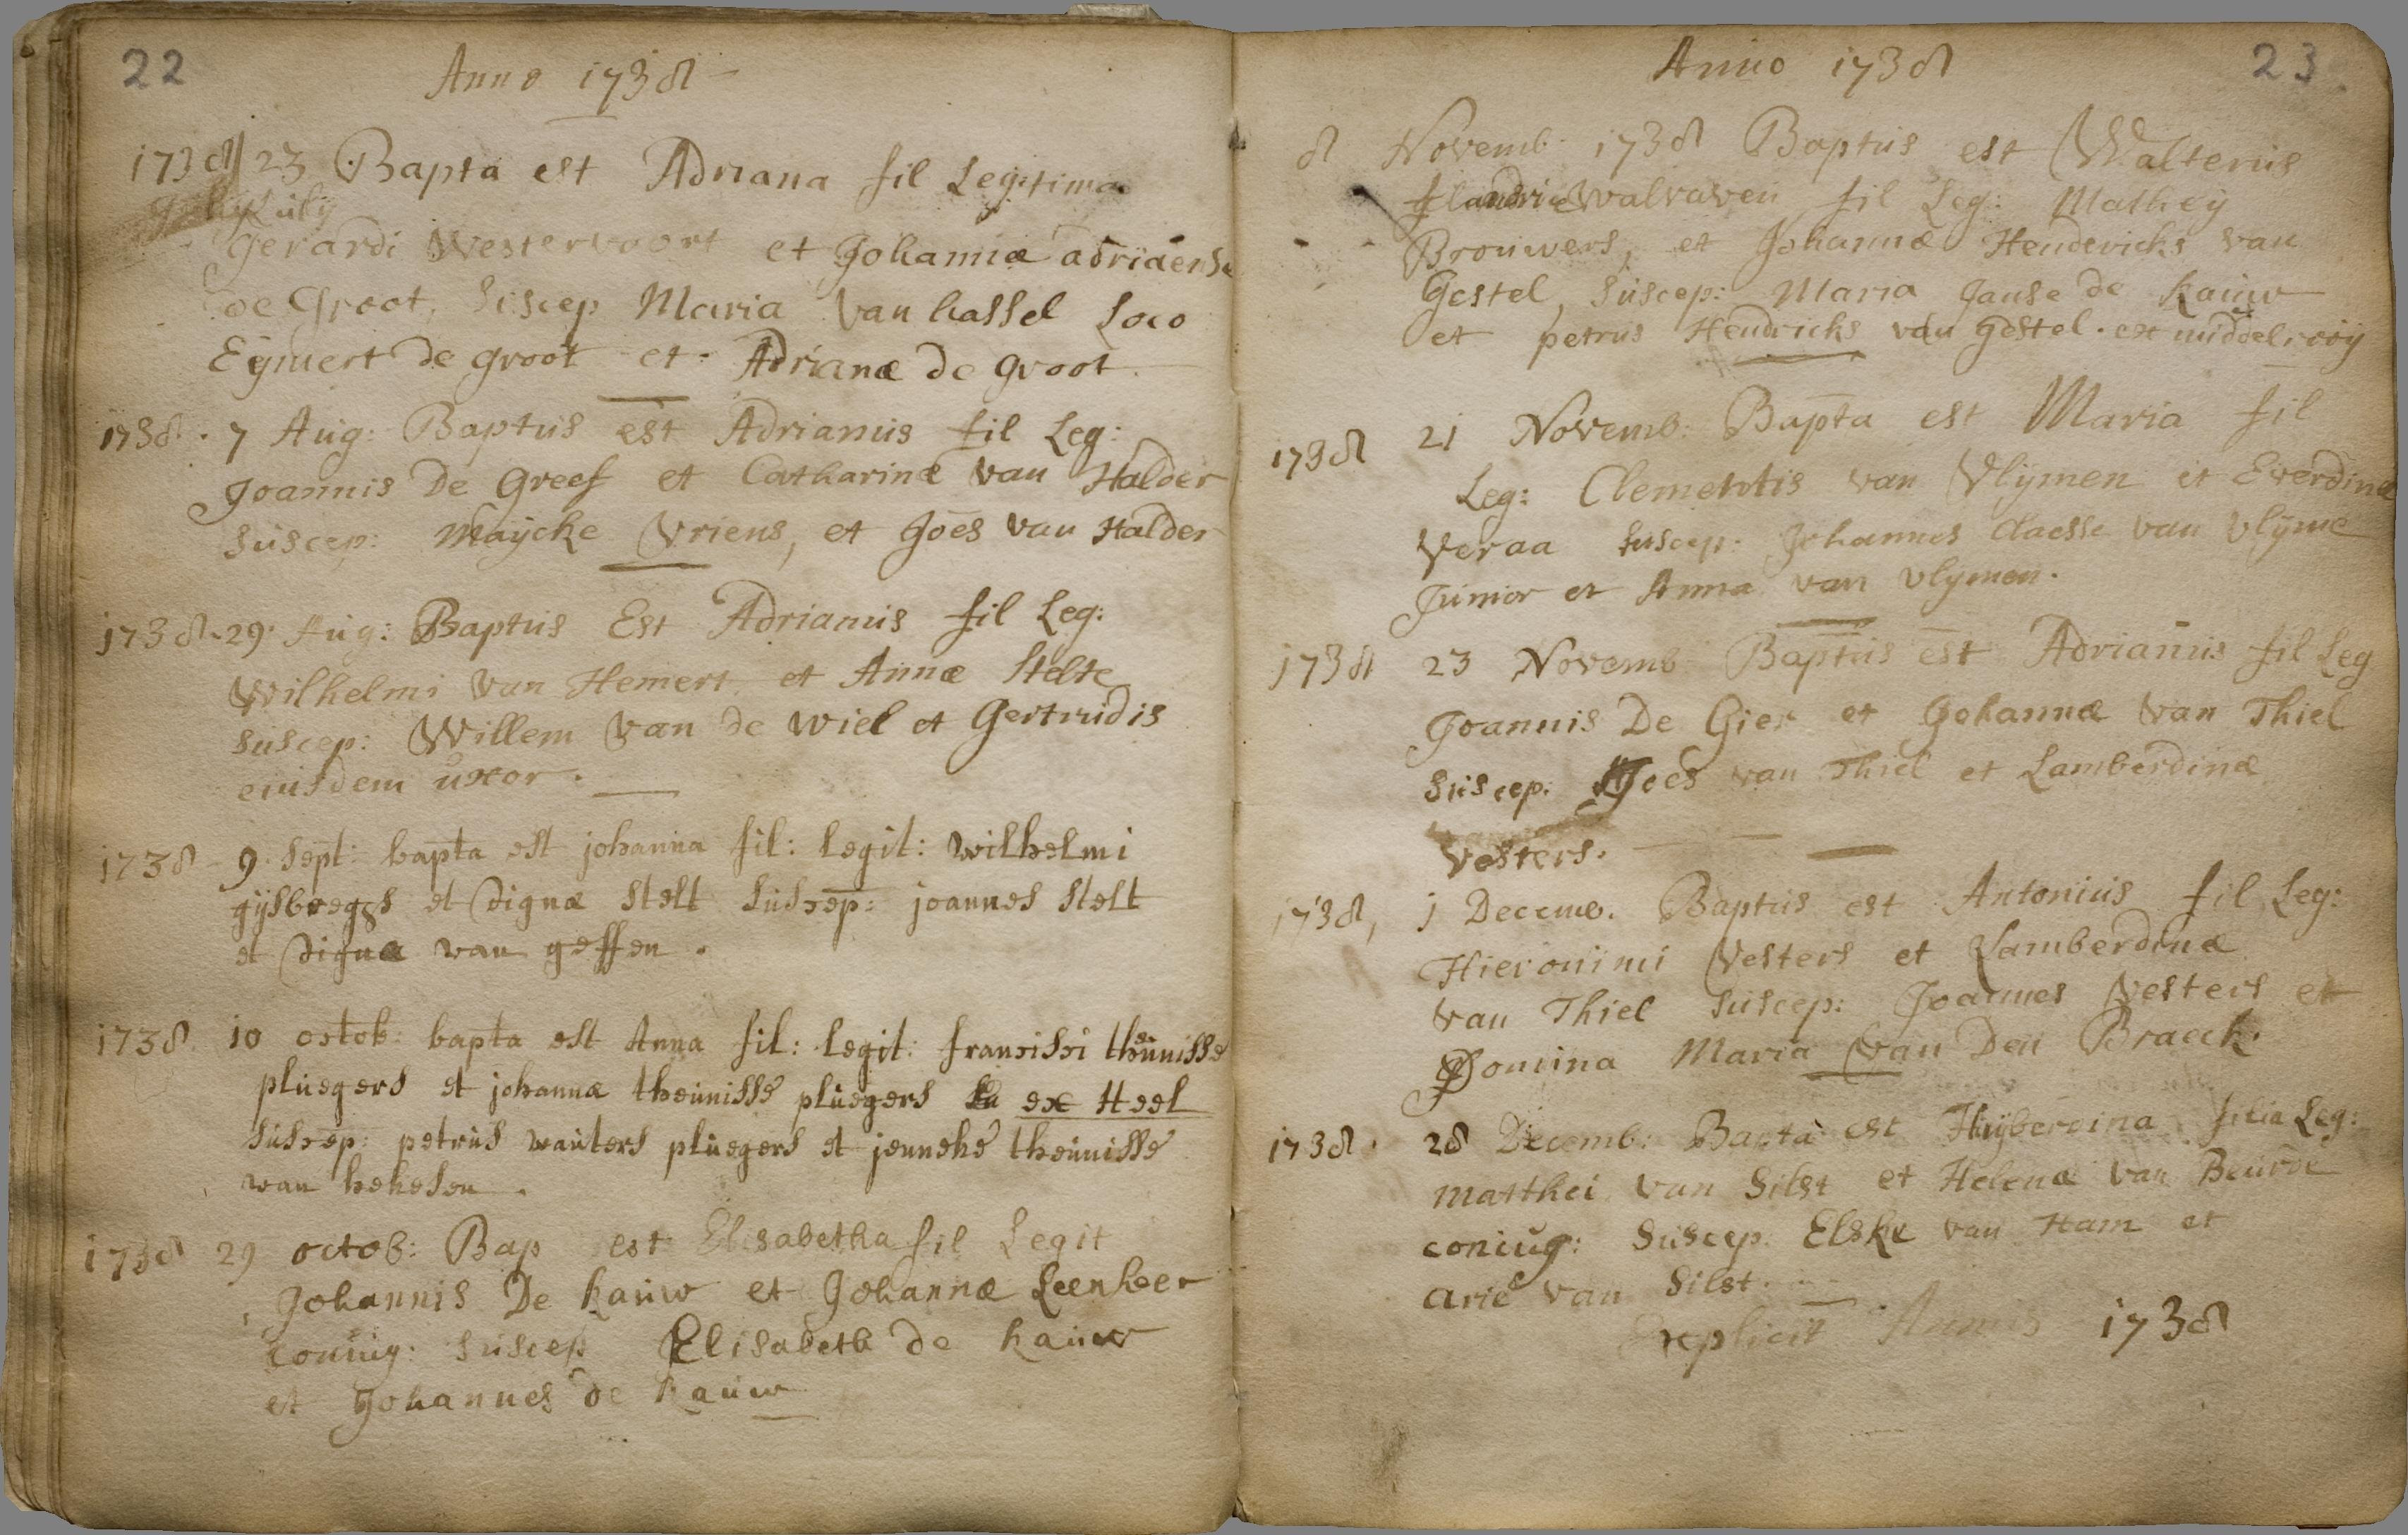 22
Anno 1738
1738 23 Bapta est Adriana fil Legitima
July
Gerardi Westervoort et Johannæ adriaense
de Groot, Suscep Maria van hassel Loco
Eijmert de groot et Adrianæ de groot.
1738. 7 Aug: Baptus est Adrianus fil Leg:
Joannis De Greef et Catharinæ van Halder
suscep: Maijcke Vriens, et Joēs van Halder
1738. 29. Aug: Baptus Est Adrianus fil Leg:
Wilhelmi van Hemert et Annæ Stelte
suscep: Willem van de wiel et Gertrudis
eiusdem uxor.
1738 9. sept: bapta est johanna fil: legit: wilhelmi
gijsbreggs et Dignæ stelt suscep: joannes stelt
et Digna van geffen.
1738. 10 octob: bapta est Anna fil: legit: francisci theunisse
pluegers et johannæ theunisse pluegers ex Heel
suscep: petrus wauters pluegers et jenneke theunisse
van hekesen.
1738 29 octob: Bap est Elisabetha fil Legit
Johannis De kauw et Johannæ Leenheer
coniug: suscep Elisabeth de kauw
et Johannes de kauw
23
Anno 1738
8 Novemb: 1738 Baptus est Walterus
Walraven fil Leg: Mathey
Brouwers, et Johannæ Hendericks van
Gestel, suscep: Maria Janse de kauw
et petrus Hendricks van gestel. ex middelrooij
1738 21 Novemb: Bapta est Maria fil
Leg: Clementis van Vlijmen et Everdinæ
Veraa suscep: Johannes claesse van vlijme
Junior et Anna van vlymen.
1738 23 Novemb Baptus est Adrianus fil Leg
Joannis De Gier et Johannæ van Thiel
suscep: Joēs van Thiel et Lamberdinæ
Vesters.
1738, 1 Decemb. Baptus est Antonius fil Leg:
Hieronimi Vesters et Lamberdinæ
van Thiel suscep: Joannes Vesters et
Domina Maria van Den Braeck.
1738. 28 Decemb: Bapta est Huijberdina filia Leg:
matthei van Silst et Helenæ van Beurde
coniug: Suscep: Elske van Ham et
Arie van Silst.
Explicit Annus 1738